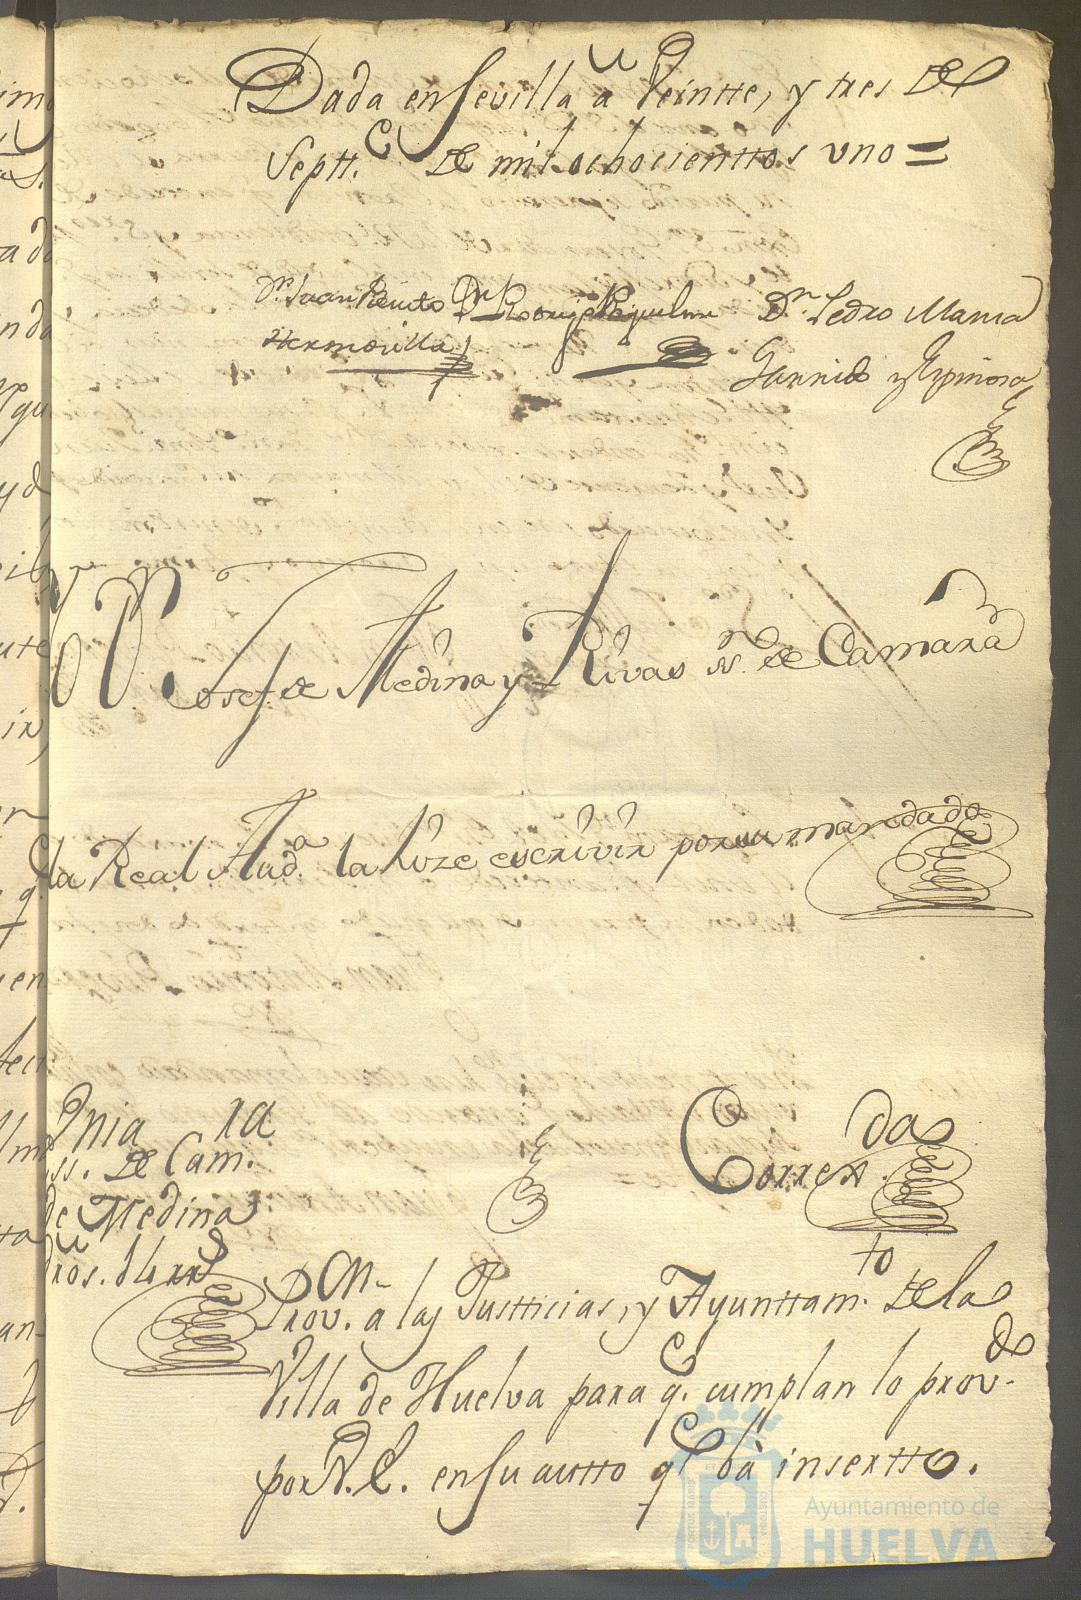 Dada en Sevilla a Veintte, y tres de
Septt.e de mil ochocienttos uno =
Dn. Juan Benito Dn. Rodrigo Riquelme Dn. Pedro Maria
Hermosilla
Garrido y Espinosa
Yo Dn. Josef de Medina y Rivas ss.no de Camara
de la Real Aud.a la hize escrivir por su mandado
ss. de Cam.ra
de Medina
Correx.da
Prov.on a las Justticias, y Ayunttam.to de la
Villa de Huelva para q.e cumplan lo prov.do
por V.E. en su autto q.e bá insertto.
Ayuntamiento de
HUELVA